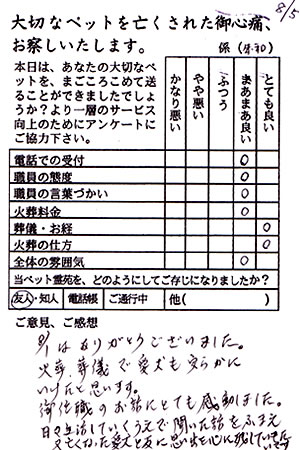 8/5
大切なペットを亡くされた御心痛、
お察しいたします。
係（
本日は、あなたの大切なペットを、まごころこめて送ることができましたでしょうか？より一層のサービス向上のためにアンケートにご協力下さい。
かなり悪い
やや悪い
ふつう
まあまあ良い
とても良い
電話での受付 ○
職員の態度 ○
職員の言葉づかい ○
火葬料金 ○
葬儀・お経 ○
火葬の仕方 ○
全体の雰囲気 ○
当ペット霊苑を、どのようにしてご存じになりましたか？
友人・知人 電話帳 ご通行中 他（ ）
ご意見、ご感想
8/1はありがとうございました。
火葬、葬儀で愛犬も安らかに
いけたと思います。
御住職のお話にとても感動しました。
日々生活していくうえで聞いた話をふまえ
亡くなった愛犬と友に思い出を心に残していきたい